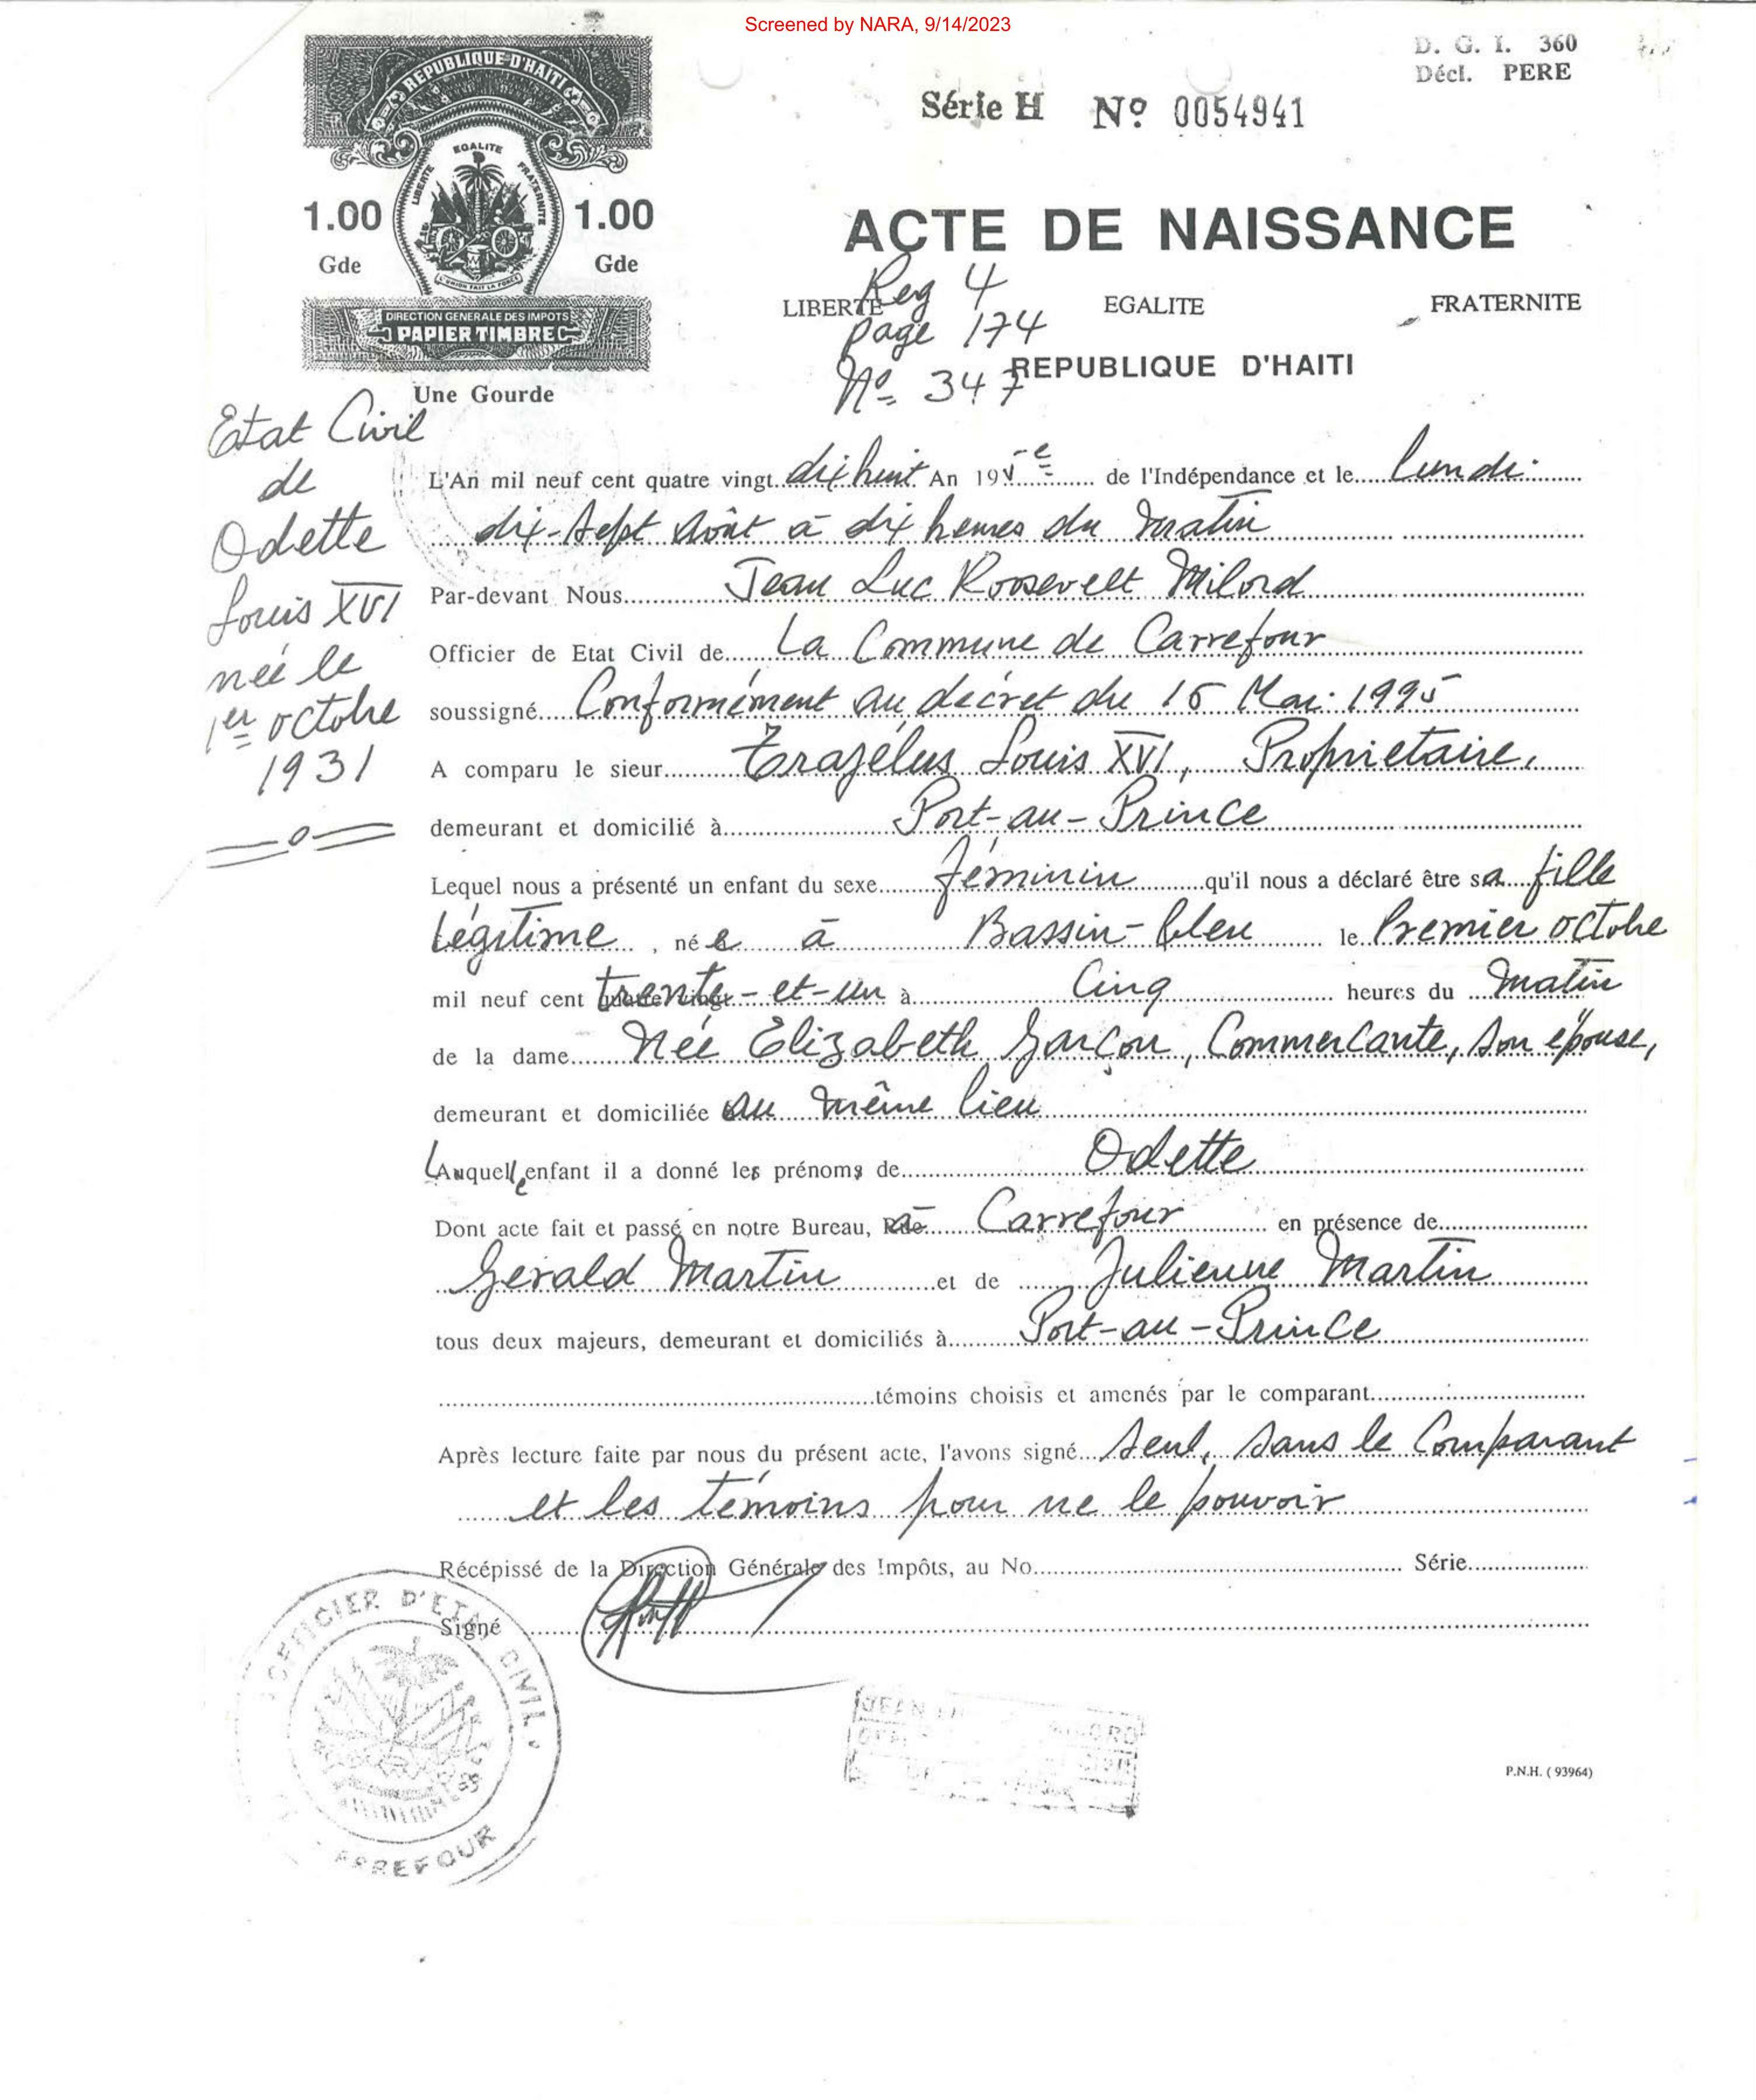 Screened by NARA, 9/14/2023
D. G. I. 360
Décl. PERE
Série H Nº 0054941
REPUBLIQUE D'HAITI
LIBERTE EGALITE FRATERNITE
L'UNION FAIT LA FORCE
1.00 1.00
Gde Gde
DIRECTION GENERALE DES IMPOTS
PAPIER TIMBRE
Une Gourde
ACTE DE NAISSANCE
LIBERTE EGALITE FRATERNITE
REPUBLIQUE D'HAITI
Reg 4
page 174
Nº 347
Etat Civil
de
Odette
Louis XVI
née le
1er octobre
1931
L'An mil neuf cent quatre vingt dix huit An 195e de l'Indépendance et le lundi
dix-sept Août à dix heures du matin
Par-devant Nous Jean Luc Roosevelt Milord
Officier de Etat Civil de La Commune de Carrefour
soussigné Conformément au décret du 15 Mai 1995
A comparu le sieur Trazélus Louis XVI, Proprietaire,
demeurant et domicilié à Port-au-Prince
Lequel nous a présenté un enfant du sexe féminin qu'il nous a déclaré être sa fille
légitime, née à Bassin-bleu le Premier octobre
mil neuf cent trente-et-un à Cinq heures du matin
de la dame Née Elizabeth Garçon, Commerçante, son épouse,
demeurant et domiciliée au même lieu
Laquelle enfant il a donné les prénoms de Odette
Dont acte fait et passé en notre Bureau, à Carrefour en présence de
Gérald Martin et de Julienne Martin
tous deux majeurs, demeurant et domiciliés à Port-au-Prince
témoins choisis et amenés par le comparant
Après lecture faite par nous du présent acte, l'avons signé seul, sans le Comparant
et les témoins pour ne le pouvoir
Récépissé de la Direction Générale des Impôts, au No. Série
Signé
OFFICIER D'ETAT CIVIL
CARREFOUR
P.N.H. ( 93964)